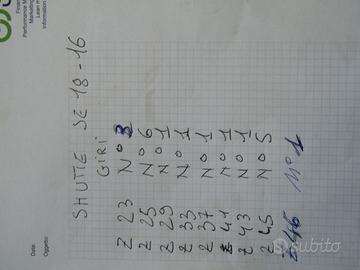 Performance M
Marketing
Lean
Information
SHUTTE SE 18-16
GIRI
Z 23 N° 3
Z 25 N° 6
Z 29 N° 1
Z 33 N° 1
Z 37 N° 1
Z 41 N° 1
Z 43 N° 1
Z 45 N° 5
Z 46 N° 1
Data:
Oggetto:
subito